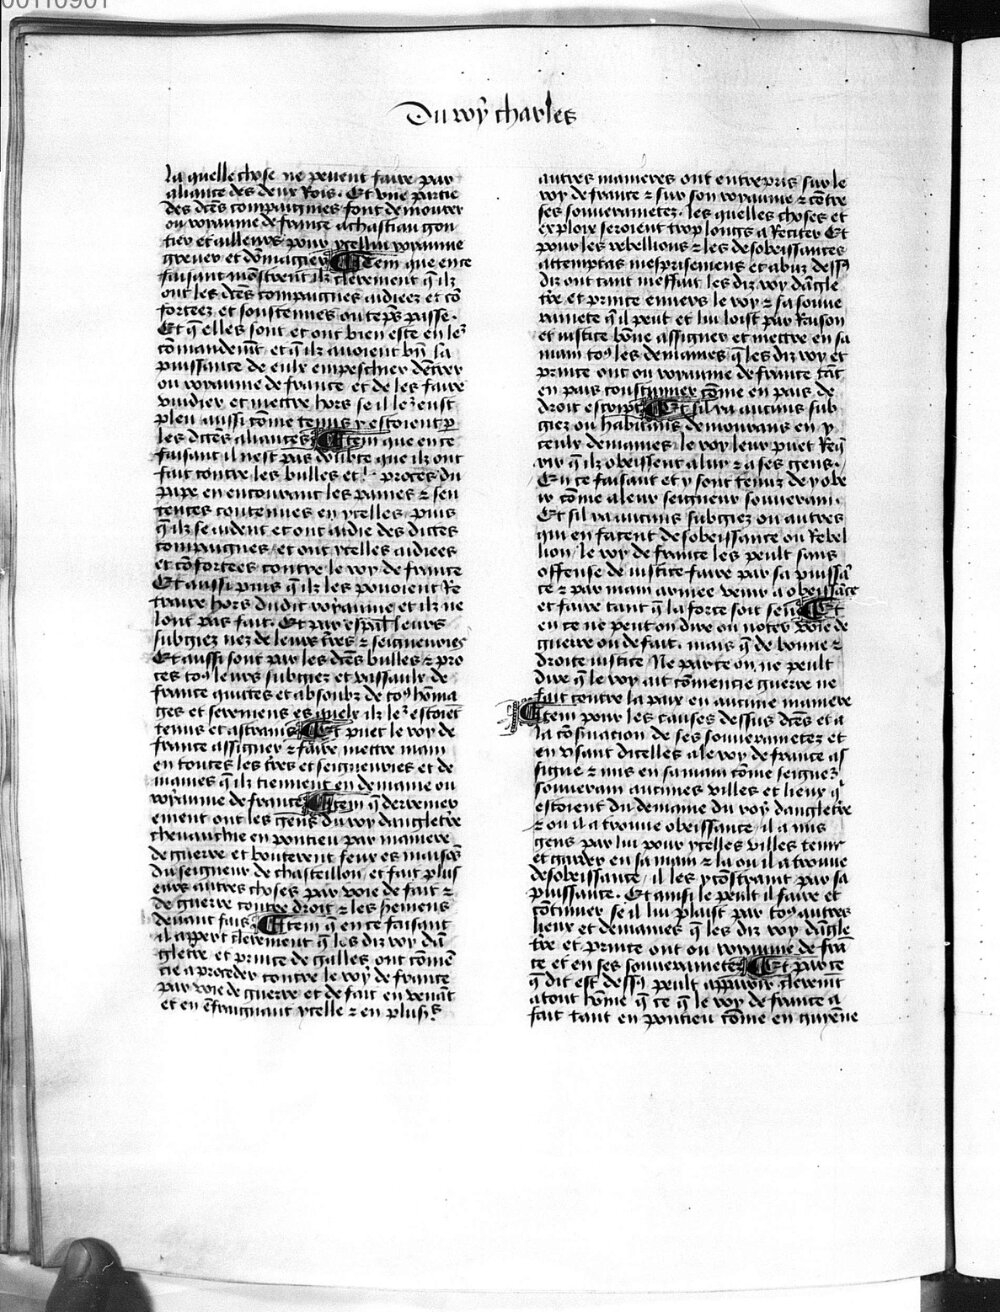 00110901
Du roy charles
la quelle chose ne peuent faire par
aliance des deux Rois. Et une partie
des dces compaignies font demourer
ou royaume de france a chastiau gon
tier et ailleurs pour ycellui royaume
grever et domagier Item que en ce
faisant monstrent ilz clerement q̃ ilz
ont les dces compaignies aidiees et cõ
fortees et soustenues ou tẽps passe.
Et q̃ elles sont et ont bien este en leᷣ
cõmandemt et q̃ ilz avoient bñ la
puissance de eulx empeschier dẽtrer
ou royaume de france et de les faire
vuidier et mettre hors se il leᷣ eust
pleu aussi cõme tenus y estoient p
les dces aliances Item que en ce
faisant il nest pas doubte que ilz ont
fait contre les bulles et proces du
pape en encourant les paines ⁊ sen
tences contenues en ycelles puis
q̃ ilz se aident et ont aidie des dictes
compaignes et ont ycelles aidiees
et cõfortees contre le roy de france
Et aussi puis q̃ ilz les povoient Re
traire hors dudit royaume et ilz ne
lont pas fait. Et par espãl leurs
subgiez nez de leurs tres ⁊ seigneuries
Et aussi sont par les dces bulles ⁊ pro
ces toꝰ leurs subgiez et vassaulx de
france quittes et absoubz de toꝰ hõma
ges et seremens es quelx ilz leᷣ estoiẽt
tenus et astrains Et puet le roy de
france assigner ⁊ faire mettre main
en toutes les tres et seigneuries et de
maines q̃ ilz tiennent en demaine ou
royaume de france Item q̃ derreniere
ement ont les gens du roy dangletre
chevauchie en pontieu par maniere
de guerre et bouterent feux es maisõs
du seigneur de chasteillon et fait plus
eurs autres choses par voie de fait ⁊
de guerre contre droit ⁊ les seremens
devant fais Item q̃ en ce faisant
il appert clerement q̃ les diz roy dã
gletre et prince de galles ont cõmẽ
cie a proceder contre le roy de france
par voie de guerre et de fait en venãt
et en ẽfraignant ycelle ⁊ en plusꝰs
autres manieres ont entrepris sur le
roy de france ⁊ sur son royaume ⁊ cõtre
ses souverainetez. les quelles choses et
exploix seroient trop longs a Reciter Et
pour les rebellions ⁊ les desobeissances
attemptas mesprisemens et abuz dessꝰ
diz ont tant meffait les diz roy dãgle
tre et prince envers le roy ⁊ sa souve
rainete q̃ il peut et lui loist par Raison
et iustice bõne assigner et mettre en sa
main toꝰ les demaines q̃ les diz roy et
prince ont ou royaume de france tãt
en pais coustumier cõme en pais de
droit escript Et sil ya aucuns sub
giez ou habitans demourans en y
ceulx demaines le roy leur puet Req̃
rir q̃ ilz obeissent a lui ⁊ a ses gens.
En ce faisant et y sont tenuz de y obe
ir cõme a leur seigneur souverain.
Et sil ya aucuns subgiez ou autres
qui en facent desobeissance ou Rebel
lion le roy de france les peult sans
offense de iustice faire par sa puissã
ce ⁊ par main armee venir a obeissãce
et faire tant q̃ la force soit seue Et
en ce ne peut on dire ou noter voie de
guerre ou de fait. mais q̃ de bonne ⁊
droite iustice Ne par ce on ne peult
dire q̃ le roy ait cõmencie guerre ne
fait contre la paix en aucune maniere
Item pour les causes dessus dces et a
la cõsvacion de ses souverainetez et
en usant dicelles a le roy de france as
signe ⁊ mis en sa main cõme seigneᷣ
souverain aucunes villes et lieux q̃
estoient du demaine du roy dangletre
⁊ ou il a trouve obeissance il a mis
gens par lui pour ycelles villes tenir
et garder en sa main ⁊ la ou il a trouve
desobeissance il les y cõstraint par sa
puissance. Et ainsi le peult il faire et
cõtinuer se il lui plaist par toꝰ autres
lieux et demaines q̃ les diz roy dãgle
tre et prince ont ou royaume de frã
ce et en ses souverainetez Et par ce
q̃ dit est dessꝰ peult apparoir cleremt
a tout hõme q̃ ce q̃ le roy de france a
fait tant en pontieu cõme en guyenne